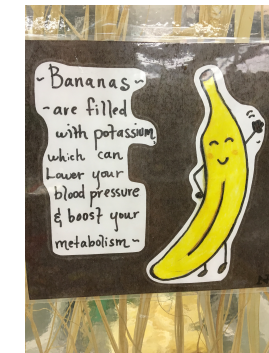 ~Bananas~
-are filled
with potassium
which can
Lower your
blood pressure
& boost your
metabolism~